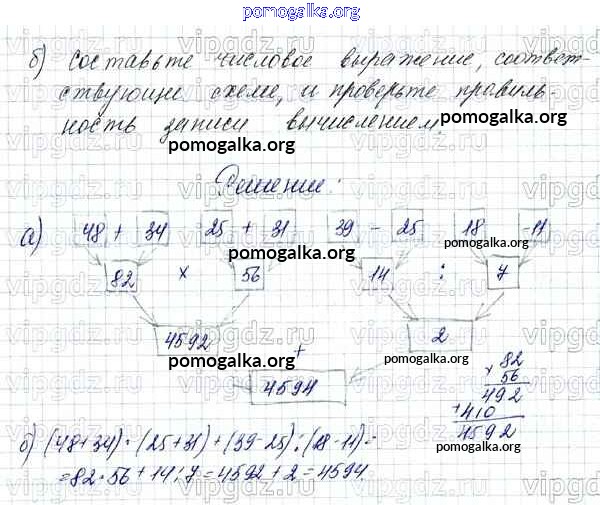 pomogalka.org
б) составьте числовое выражение, соответ-
ствующи схеме, и проверьте правиль-
ность записи вычислением.
pomogalka.org
pomogalka.org
Решение:
а) 48 + 34 25 + 31 39 - 25 18 -11
pomogalka.org
82 x 56 14 : 7
4592 + 2
pomogalka.org
pomogalka.org
4594
x 82
56
492
+410
4592
б) (48+34)·(25+31)+(39-25):(18-11)=
=82·56+14:7=4592+2=4594.